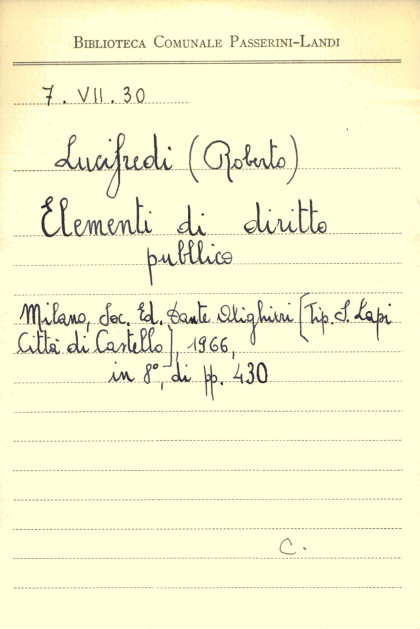 BIBLIOTECA COMUNALE PASSERINI-LANDI
7. VII. 30
Lucifredi (Roberto)
Elementi di diritto
pubblico
Milano, Soc. Ed. Dante Alighieri [Tip. S. Lapi
Città di Castello], 1966,
in 8°, di pp. 430
C.